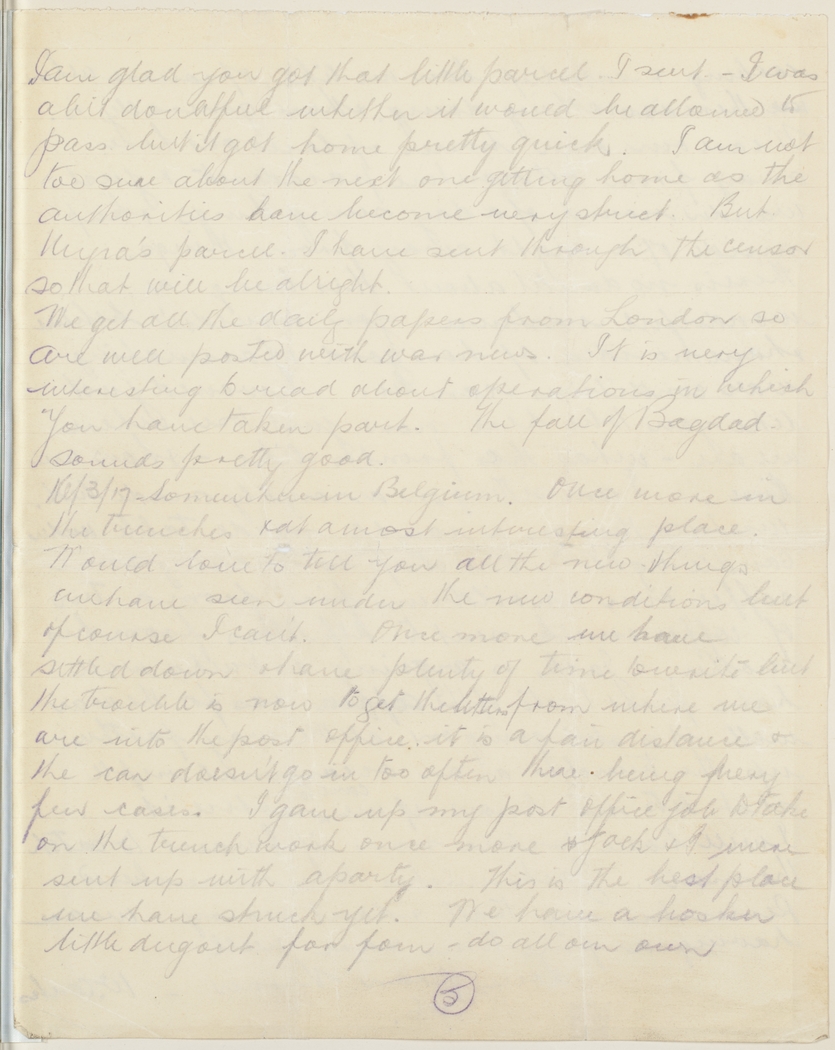 I am glad you got that little parcel. I sent. - I was
a bit doubtful whether it would be allowed to
pass but it got home pretty quick. I am not
too sure about the next one getting home as the
authorities have become very strict. But.
Myra's parcel. I have sent through the censor
so that will be alright.
We get all the daily papers from London so
are well posted with war news. It is very
interesting to read about operations in which
you have taken part. The fall of Bagdad.
sounds pretty good.
/3/17 Somewhere in Belgium. Once more in
the trenches & at a most interesting place.
Would love to tell you all the new things
we have seen under the new conditions but
of course I can't. Once more we have
settled down & have plenty of time to write but
the trouble is now to get the letters from where we
are into the post office. it is a fair distance &
the car doesn't go in too often there. being very
few cases. I gave up my post office job to take
on the trench work once more & Jack & I were
sent up with a party. This is the best place
we have struck yet. We have a bosker
little dugout for four - do all our own
5